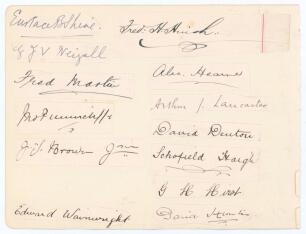 Eustace B. Shine.
G J V Weigall
Fred Marten
Jno Tunnicliffe
J. T. Brown Jnr
Edward Wainwright
Fred. H. Huish.
Alec. Hearne
Arthur J. Lancaster
David Denton.
Schofield Haigh
G H Hirst
David Hunter